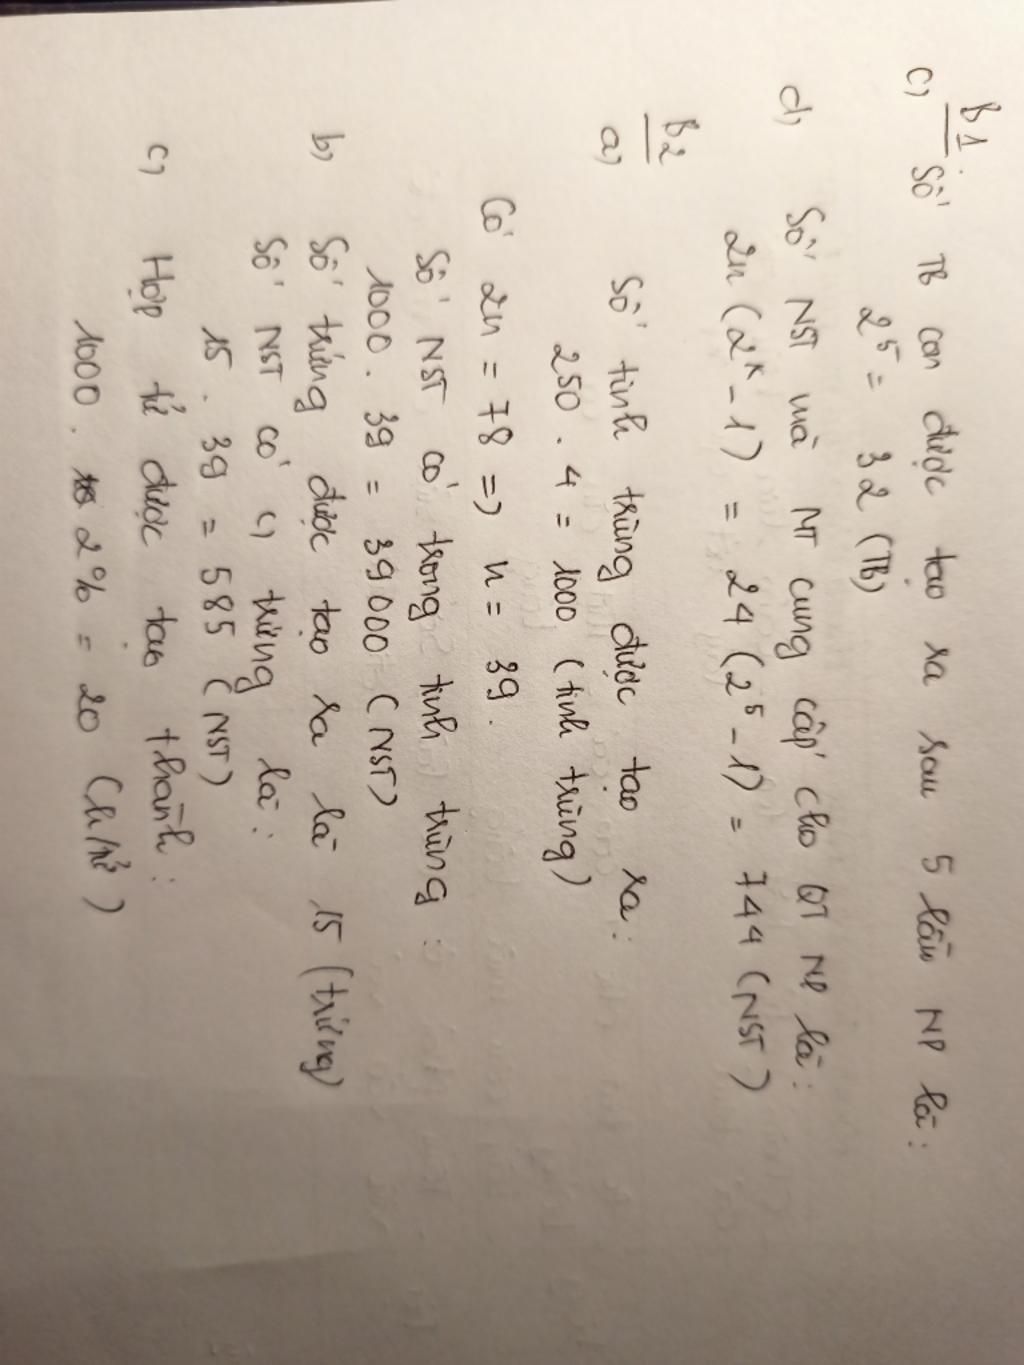 B1
c, Số TB con được tạo ra sau 5 lần NP là:
2⁵ = 32 (TB)
d, Số NST mà MT cung cấp cho QT NP là:
2n (2ᵏ - 1) = 24 (2⁵ - 1) = 744 (NST)
B2
a, Số tinh trùng được tạo ra:
250 . 4 = 1000 (tinh trùng)
Có 2n = 78 => n = 39.
Số NST có trong tinh trùng:
1000 . 39 = 39000 (NST)
b, Số trứng được tạo ra là 15 (trứng)
Số NST có trứng là:
15 . 39 = 585 (NST)
c, Hợp tử được tạo thành:
1000 . 2% = 20 (h/tử)